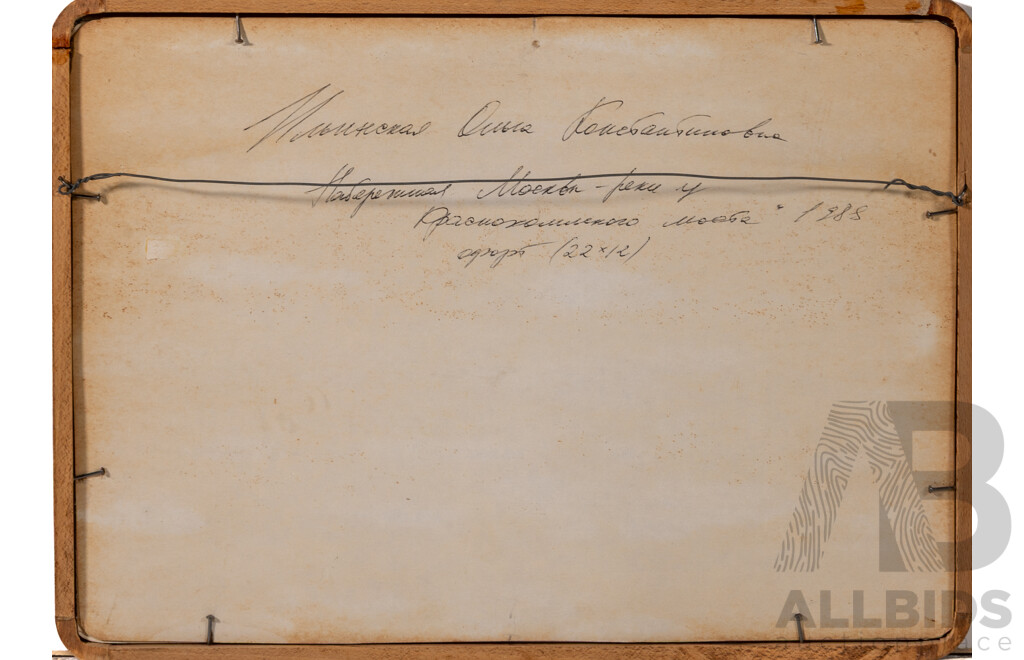 Ильинская Ольга Константиновна
Набережная Москвы-реки у
Краснохолмского моста" 1988
офорт (22×12)
ALLBIDS